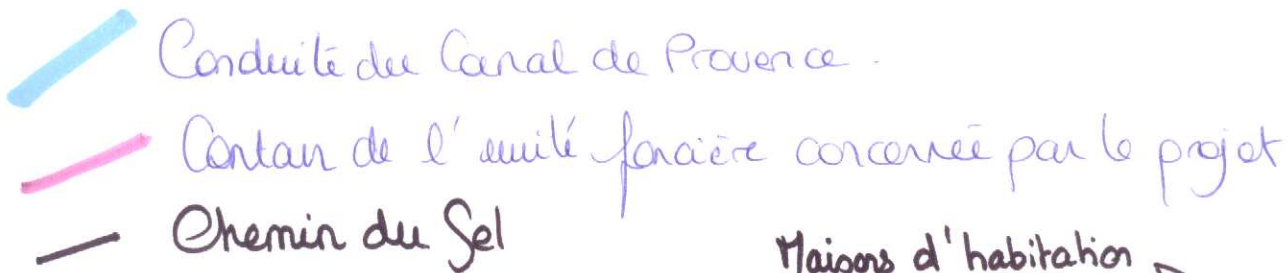 Conduite du Canal de Provence.
Contour de l'unité foncière concernée par le projet
Chemin du Sel
Maisons d'habitation